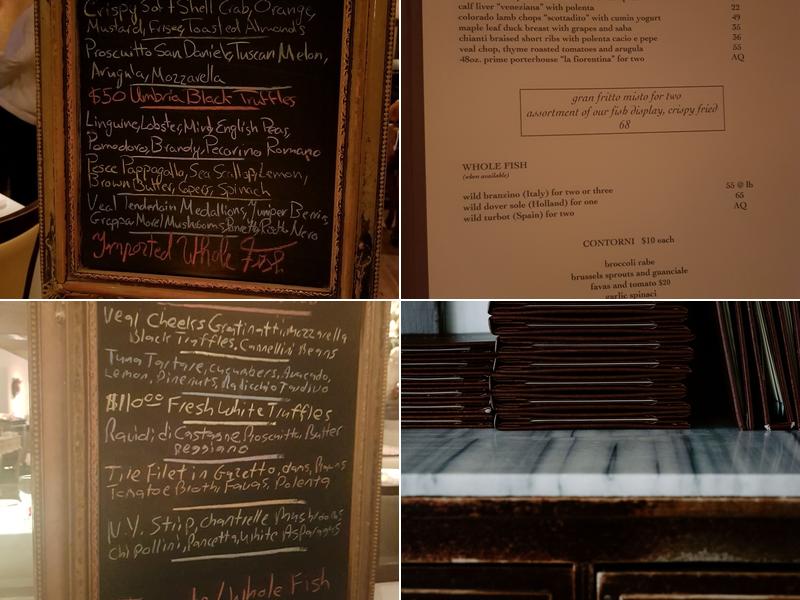 Crispy Soft Shell Crab, Orange,
Mustard, Frisee, Toasted Almonds
Proscuitto San Daniele, Tuscan Melon,
Arugula, Mozzarella
$50 Umbria Black Truffles
Linguine, Lobster, Mint, English Peas,
Pomodoro, Brandy, Pecorino Romano
Pesce Pappagallo, Sea Scallop, Lemon,
Brown Butter, Capers, Spinach
Veal Tenderloin Medallions, Juniper Berries,
Grappa Morel Mushrooms, Nero
Imported Whole Fish
calf liver "veneziana" with polenta 22
colorado lamb chops "scottadito" with cumin yogurt 49
maple leaf duck breast with grapes and saba 35
chianti braised short ribs with polenta cacio e pepe 36
veal chop, thyme roasted tomatoes and arugula 55
48oz. prime porterhouse "la fiorentina" for two AQ
gran fritto misto for two
assortment of our fish display, crispy fried
68
WHOLE FISH
(when available)
wild branzino (Italy) for two or three 55 @ lb
wild dover sole (Holland) for one 65
wild turbot (Spain) for two AQ
CONTORNI $10 each
broccoli rabe
brussels sprouts and guanciale
favas and tomato $20
garlic spinaci
Veal Cheeks Gratinatti, mozzarella
Black Truffles, Cannellini Beans
Tuna Tartare, cucumbers, Avocado,
Lemon, Pinenuts, Radicchio Tardivo
$110.00 Fresh White Truffles
Ravioli di Castagne, Proscuitto, Butter
Reggiano
Tile Filet in Gazetto, clams,
Tomatoe Broth, Favas, Polenta
N.Y. Strip, chantrelle Mushrooms
Chipollini, Pancetta, White Asparagus
Whole Fish